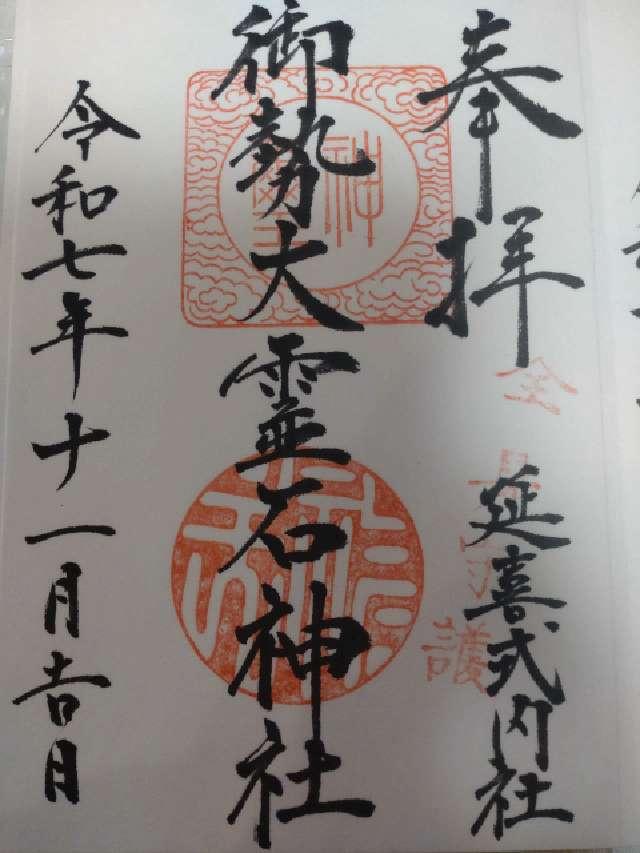 奉拝
延喜式内社
御勢大霊石神社
令和七年十一月吉日